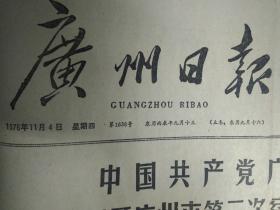 廣州日報
GUANGZHOU RIBAO
1976年11月4日 星期四 第1636号 农历丙辰年九月十三 (立冬：农历九月十六)
中国共产党广